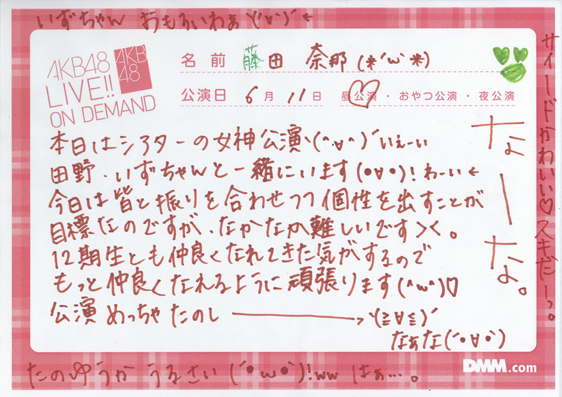 いずちゃん おもろいわぁ ヾ(°∀°)ゞ ←
AKB48
LIVE!!
ON DEMAND
AKB
48
名前 藤田 奈那 (*´ω`*)
公演日 6月11日 昼公演・おやつ公演・夜公演
本日はシアターの女神公演ヽ(^∀^)ノいぇーい
田野、いずちゃんと一緒にいます(●∀●)!わーい←
今日は皆と振りを合わせつつ個性を出すことが
目標なのですが、なかなか難しいです><。
12期生とも仲良くなれてきた気がするので
もっと仲良くなれるように頑張ります(^ω^)♡
公演 めっちゃ たのしーーーヾ(≧∀≦)ゞ
なぁな(´●∀●`)
なーな。
サイードかわいい♡スキだーっ。
DMM.com
たのゆうか うるさい (´●ω●`)!ww はぁ…。